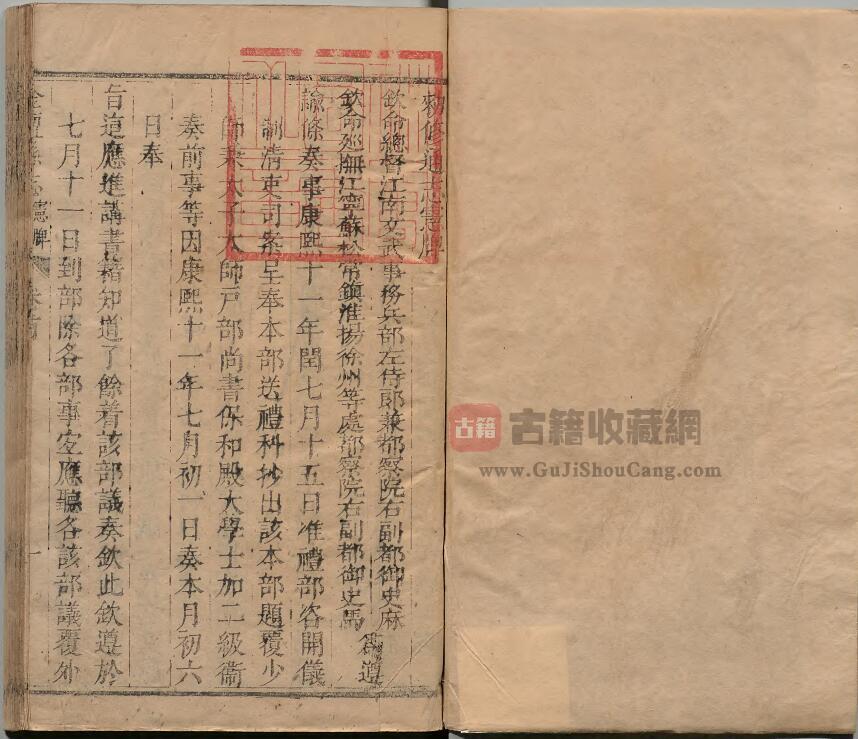 勑修通志憲牌
欽命總督江南文武事務兵部左侍郎兼都察院右副都御史麻
欽命廵撫江寧蘇松常鎭淮揚徐州等處都察院右副都御史馬 爲遵
諭條奏事康熙十一年閏七月十五日准禮部咨開儀
制清吏司案呈奉本部送禮科抄出該本部題覆少
師兼太子太師戸部尚書保和殿大學士加二級衞
奏前事等因康熙十一年七月初一日奏本月初六
日奉
旨這應進講書籍知道了餘着該部議奏欽此欽遵於
七月十一日到部除各部事宐應聽各該部議覆外
金壇縣志 憲牌 卷首 一
古籍
古籍收藏網
www.GuJiShouCang.com